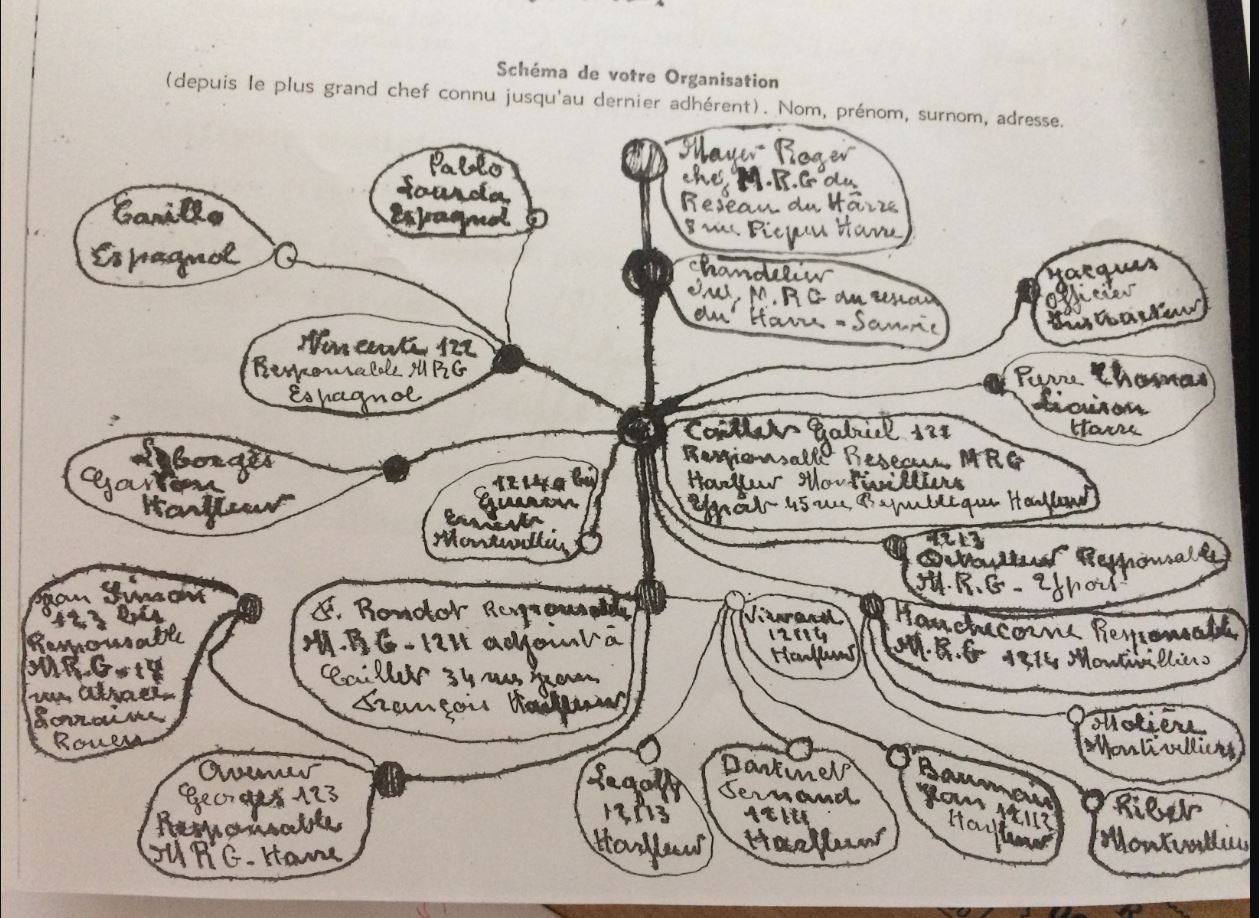 Schéma de votre Organisation
(depuis le plus grand chef connu jusqu'au dernier adhérent). Nom, prénom, surnom, adresse.
Mayer Roger
chef M.R.G du
Reseau du Hâvre
8 rue Picpus Havre
Pablo
Espagnol
Carillo
Espagnol
Chandelier
M.R.G du reseau
du Havre - Sanvic
Jacques
Officier
Instructeur
Vincente 122
Responsable MRG
Espagnol
Pierre Thomas
Liaison
Havre
Caillet Gabriel 121
Responsable Reseau MRG
Harfleur Montivilliers
Yport 45 rue Republique Harfleur
Leborgès
Gaston
Harfleur
Ernest
Montivilliers
1213
Responsable
M.R.G - Yport
Jean
123 bis
Responsable
M.R.G - 17
rue Alsace
Lorraine
Rouen
F. Rondot Responsable
M.R.G - 1211 adjoint à
Caillet 34 rue Jean
François Harfleur
12114
Harfleur
Hauchecorne Responsable
M.R.G 1214 Montivilliers
Molière
Montivilliers
Avenel
Georges 123
Responsable
M R G - Havre
Legoff
12113
Harfleur
Fernand
Harfleur
Jean 12112
Harfleur
Ribet
Montivilliers